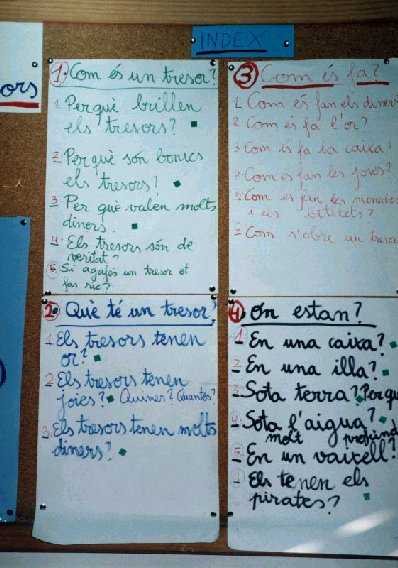 ors
INDEX
1. Com és un tresor?
1. Perquè brillen
els tresors?
2. Per què són bonics
els tresors?
3. Per què valen molts
diners.
4. Els tresors són de
veritat?
5. Si agafes un tresor et
fas ric?
2. Què té un tresor?
1. Els tresors tenen
or?
2. Els tresors tenen
joies? Quines? Quantes?
3. Els tresors tenen molts
diners?
3 Com es fa?
1. Com es fan els diners
2. Com es fa l'or?
3. Com es fa la caixa?
4. Com es fan les joies?
5. Com es fan les monedes
i els bitllets?
Com s'obre un tresor
4 On estan?
1 En una caixa?
2 En una illa?
3 Sota terra? Perquè
4 Sota l'aigua?
molt profund
5 En un vaixell?
Els tenen els
pirates?